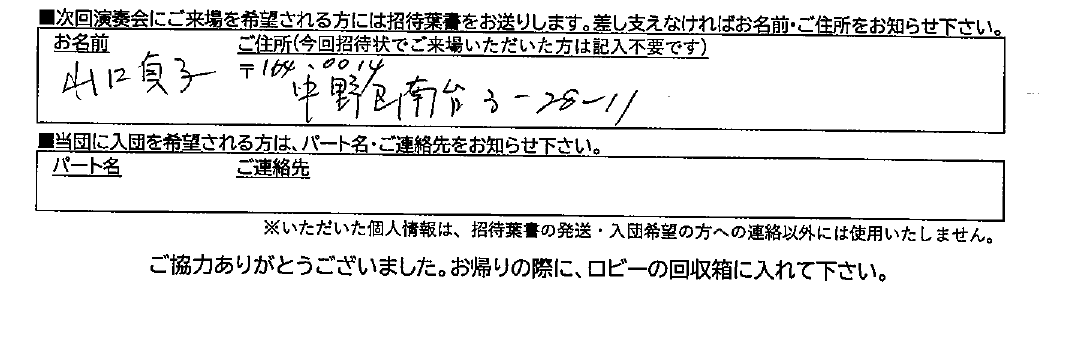 ■次回演奏会にご来場を希望される方には招待葉書をお送りします。差し支えなければお名前・ご住所をお知らせ下さい。
お名前 ご住所(今回招待状でご来場いただいた方は記入不要です)
山口貞子 〒164-0014
中野区南台3-28-11
■当団に入団を希望される方は、パート名・ご連絡先をお知らせ下さい。
パート名 ご連絡先
※いただいた個人情報は、招待葉書の発送・入団希望の方への連絡以外には使用いたしません。
ご協力ありがとうございました。お帰りの際に、ロビーの回収箱に入れて下さい。